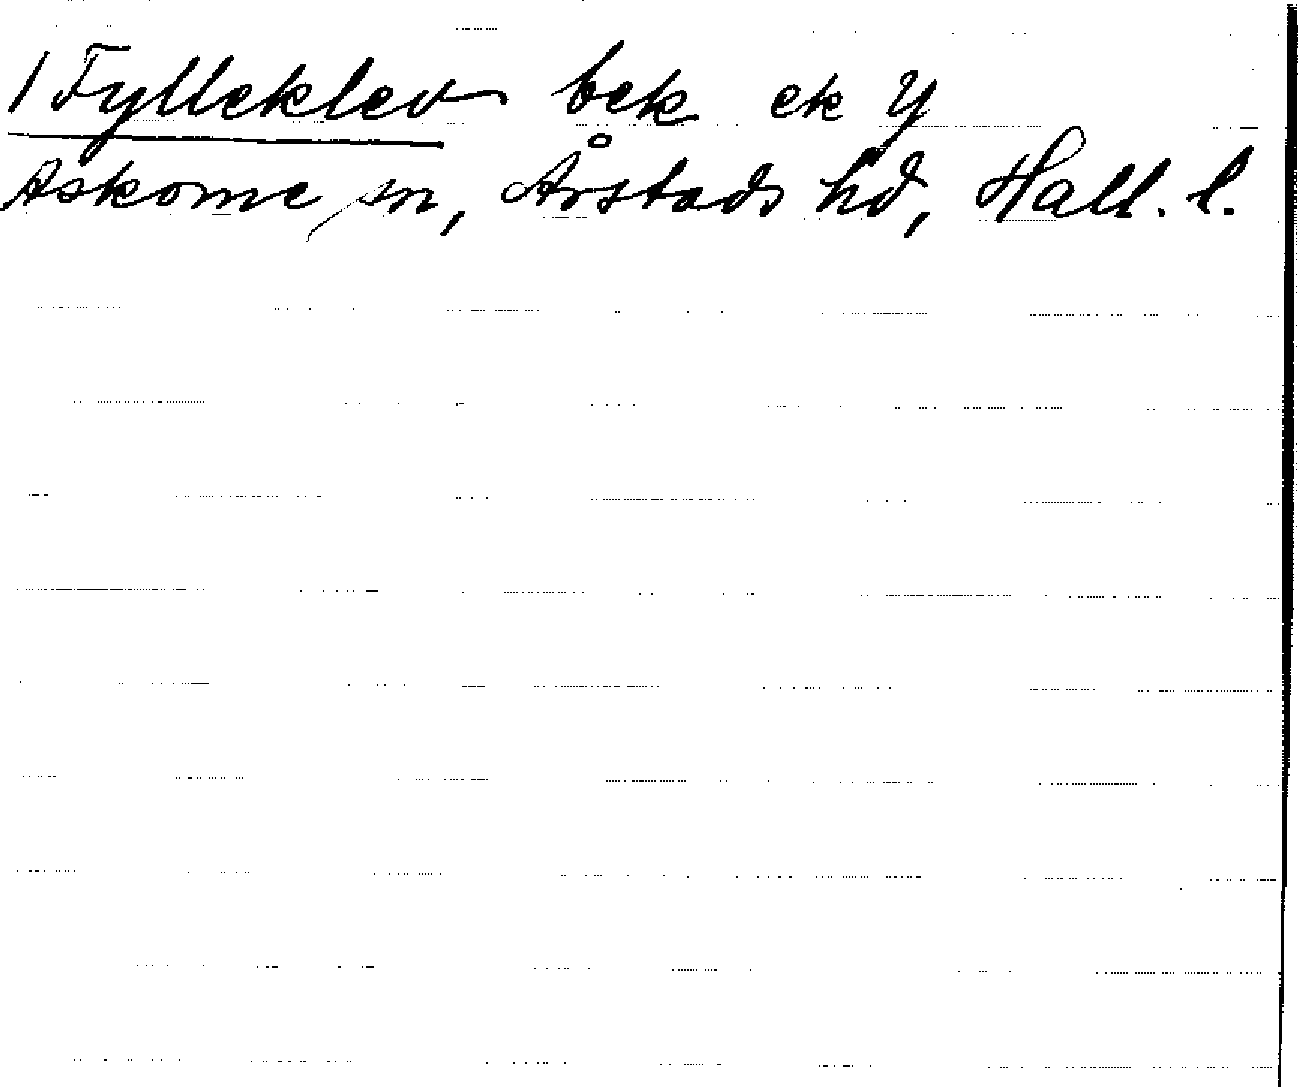 / Fylleklev bek ek y
Askome sn, Årstads hd, Hall. l.